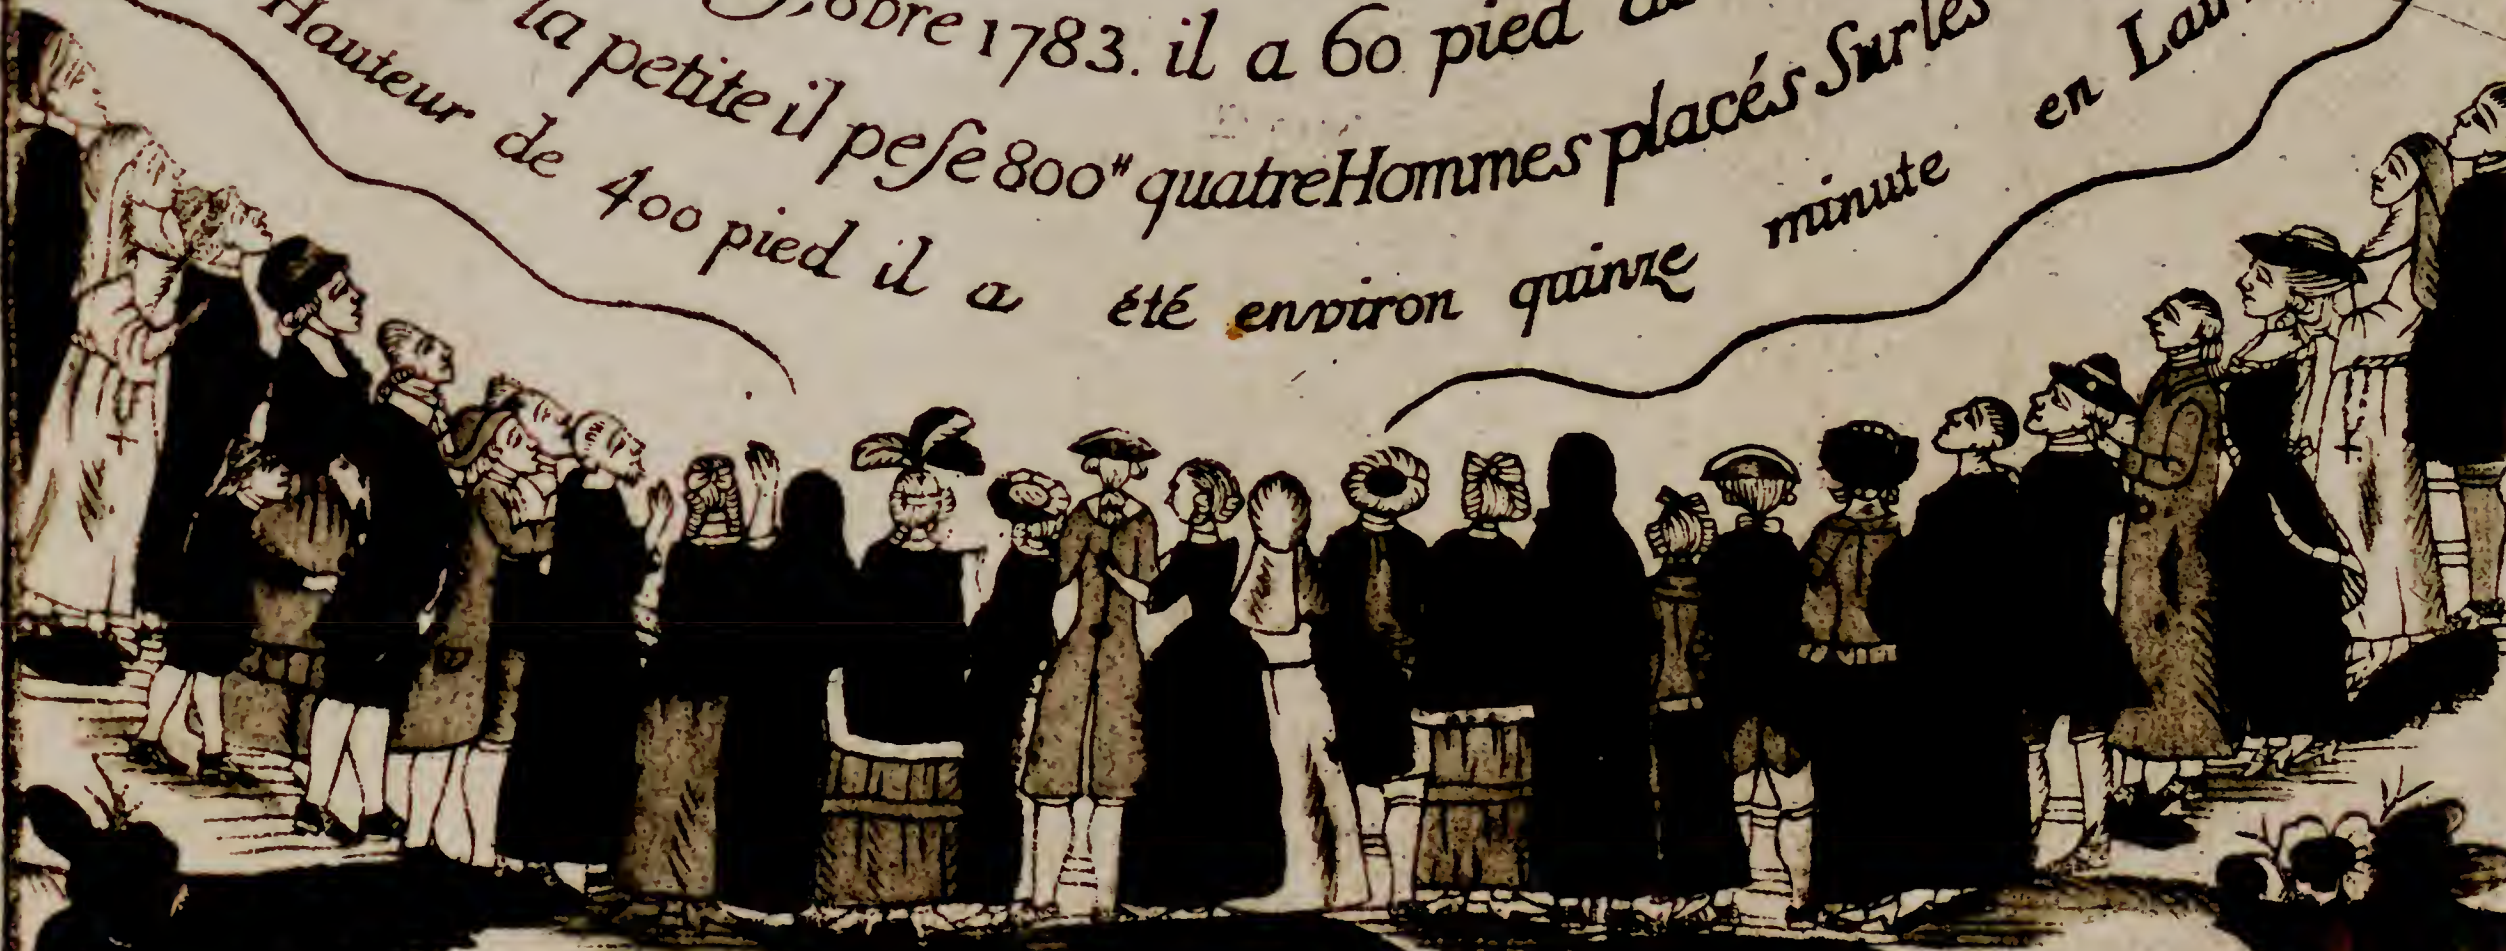 obre 1783. il a 60 pied
la petite il peſe 800# quatre Hommes placés Sur les
Hauteur de 400 pied il a été environ quinze minute en Lair